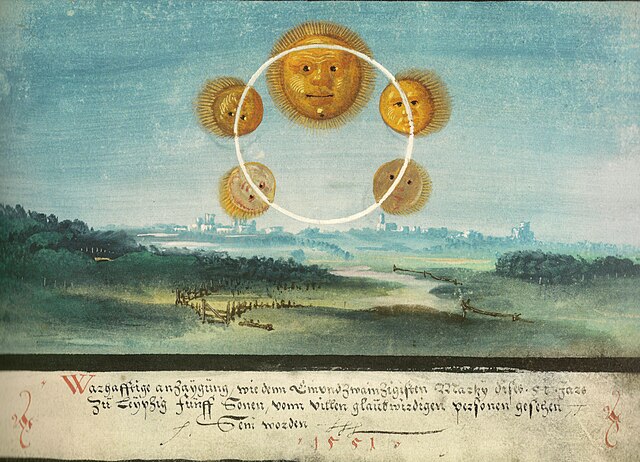 Warhafftige anzaygung, wie dem Einundzwainzigisten Marty diss. 51. Jars
Zu Leypzig Funff Sonen, vonn villen glaubwirdigen personen gesehen
Sein worden
1551